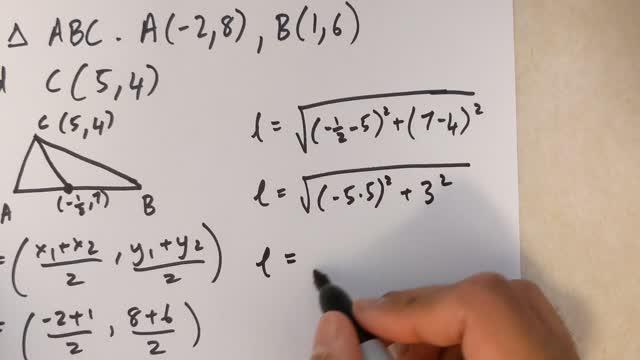 Δ ABC . A(-2,8) , B(1,6)
C(5,4)
C(5,4)
A
B
= (x₁+x₂/2 , y₁+y₂/2)
= (-2+1/2 , 8+6/2)
l = √(-½-5)²+(7-4)²
l = √(-5.5)² + 3²
l =